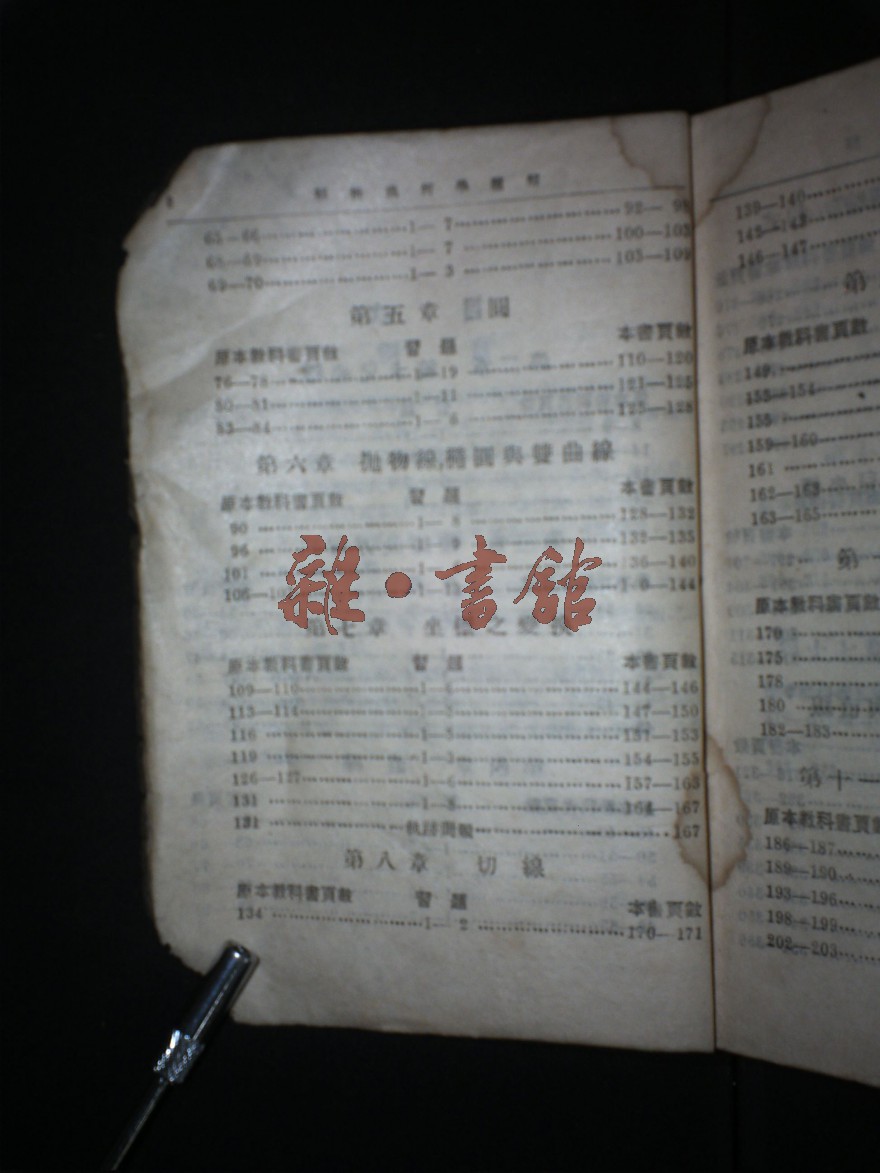 65—66 1—7 92—
68—69 1—7 100—105
69—70 1—3 105—109
第五章 圓
原本教科書頁數 習題 本書頁數
76—78 1—19 110—120
80—81 1—11 121—125
83—84 1—6 125—128
第六章 拋物線,橢圓與雙曲線
原本教科書頁數 習題 本書頁數
90 1—8 128—132
96 1—9 132—135
101 136—140
144
雜·書館
第七章 坐標之變換
原本教科書頁數 習題 本書頁數
109—110 144—146
113—114 147—150
116 153
119 1—3 154—155
126—127 1—6 157—163
131 1—8 164—167
131 軌跡問題 167
第八章 切線
原本教科書頁數 習題 本書頁數
134 1—2 170—171
139—140
142—143
146—147
第
原本教科書頁數
149
153—154
155
159—160
161
162—163
163—165
第
原本教科書頁數
170
175
178
180
182—183
第十一
原本教科書頁數
186—187
189—190
193—196
198—199
202—203